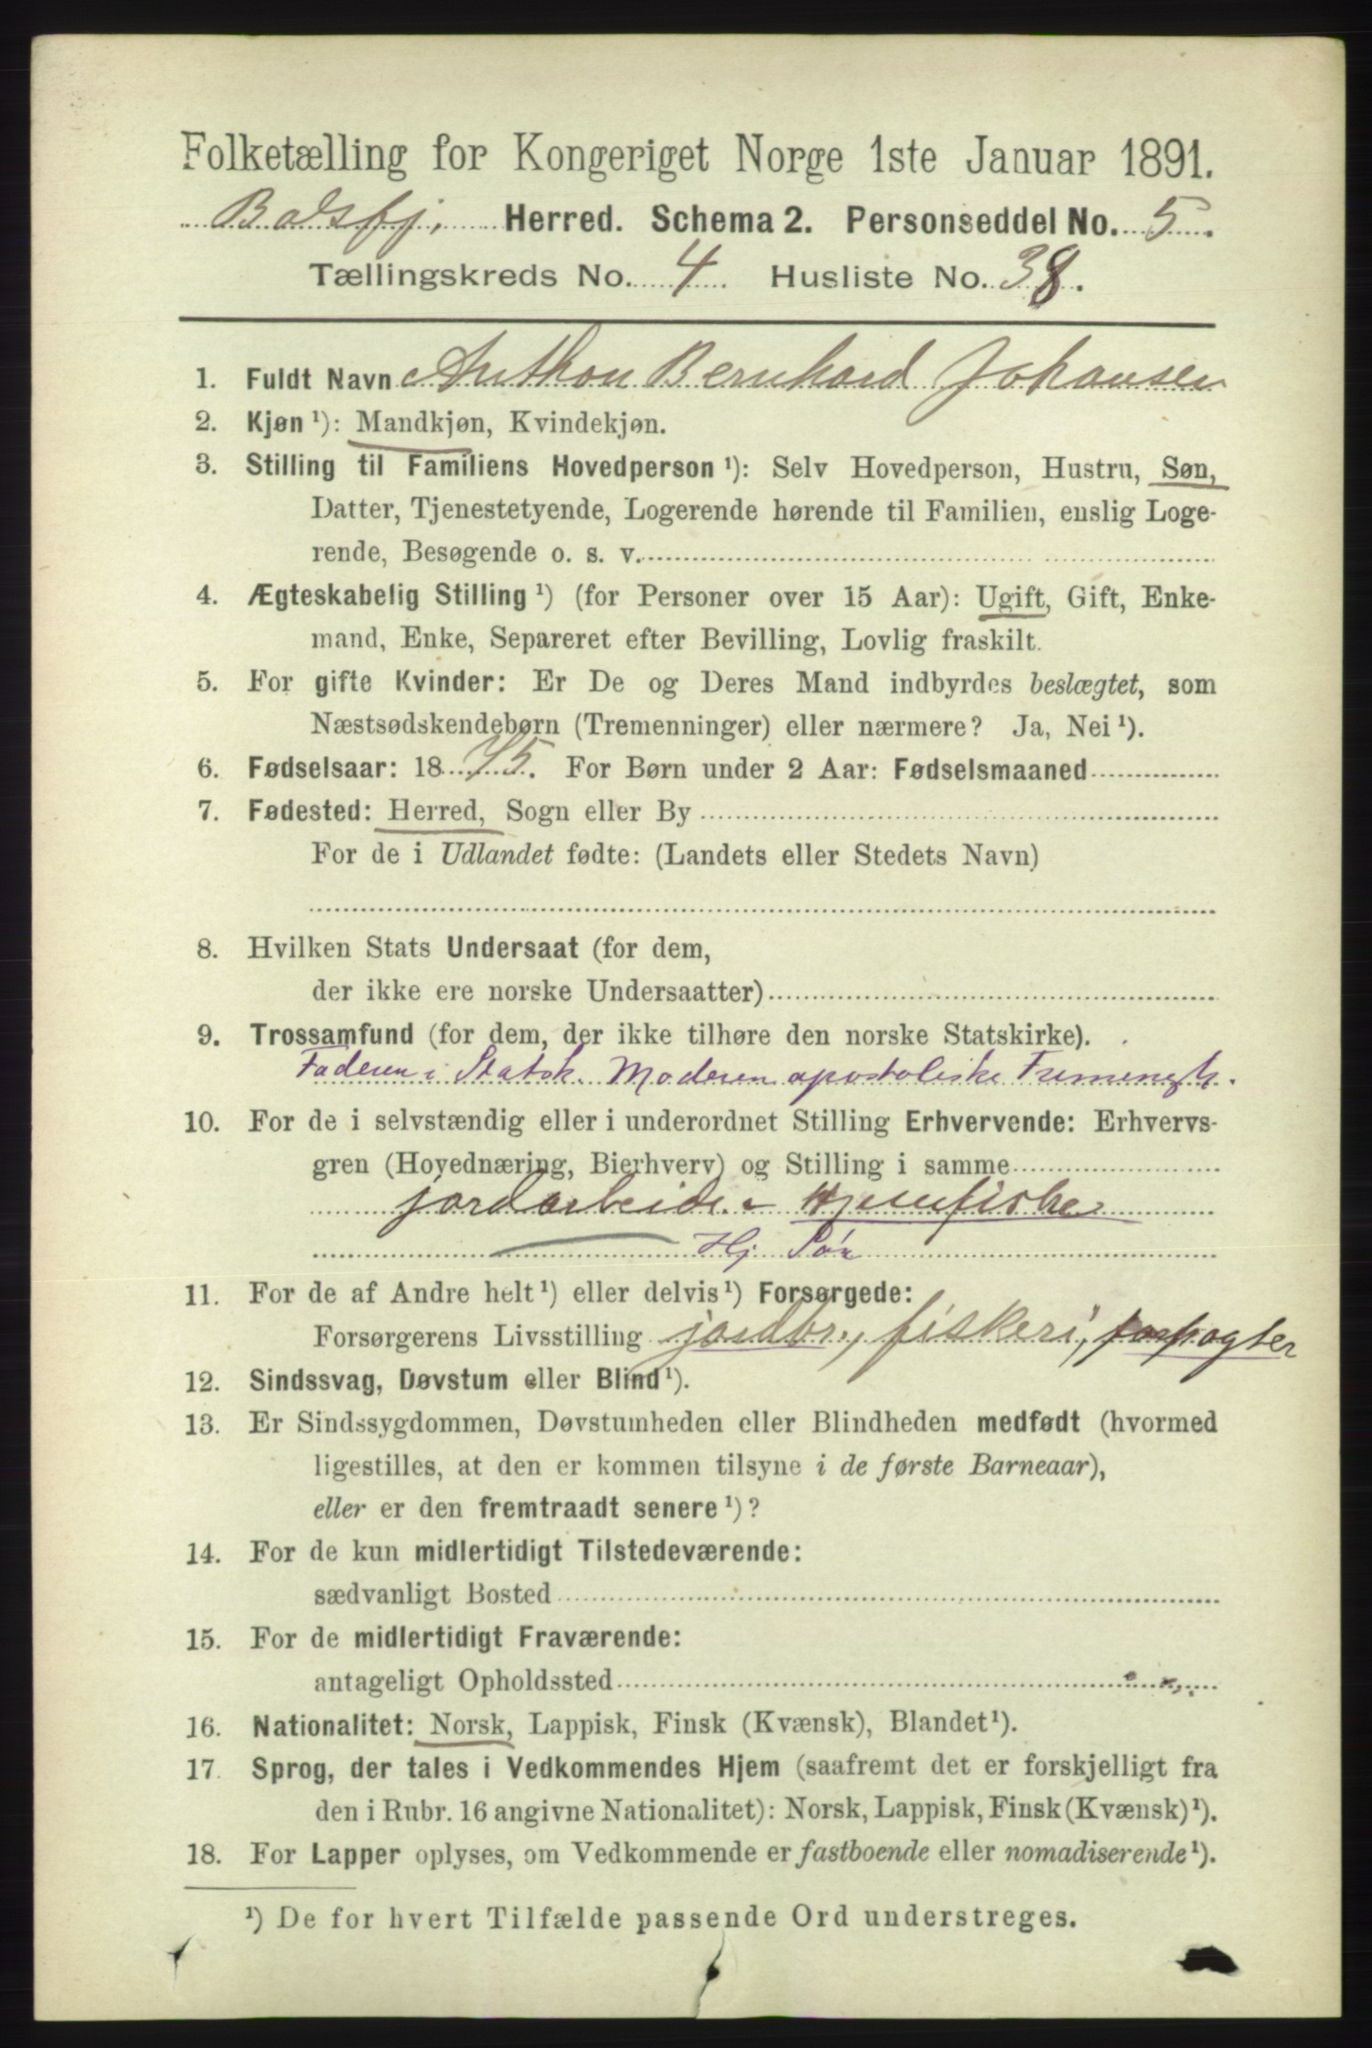 Folketælling for Kongeriget Norge 1ste Januar 1891.
Balsfj. Herred. Schema 2. Personseddel No. 5.
Tællingskreds No. 4 Husliste No. 38.
1. Fuldt Navn Anthon Bernhard Johansen
2. Kjøn ¹): Mandkjøn, Kvindekjøn.
3. Stilling til Familiens Hovedperson ¹): Selv Hovedperson, Hustru, Søn,
Datter, Tjenestetyende, Logerende hørende til Familien, enslig Loge-
rende, Besøgende o. s. v.
4. Ægteskabelig Stilling ¹) (for Personer over 15 Aar): Ugift, Gift, Enke-
mand, Enke, Separeret efter Bevilling, Lovlig fraskilt.
5. For gifte Kvinder: Er De og Deres Mand indbyrdes beslægtet, som
Næstsødskendebørn (Tremenninger) eller nærmere? Ja, Nei ¹).
6. Fødselsaar: 18 75. For Børn under 2 Aar: Fødselsmaaned
7. Fødested: Herred, Sogn eller By
For de i Udlandet fødte: (Landets eller Stedets Navn)
8. Hvilken Stats Undersaat (for dem,
der ikke ere norske Undersaatter)
9. Trossamfund (for dem, der ikke tilhøre den norske Statskirke).
Faderen i Statsk. Moderen apostoliske
10. For de i selvstændig eller i underordnet Stilling Erhvervende: Erhvervs-
gren (Hovednæring, Bierhverv) og Stilling i samme
jordarbeide Hjemfiske
Hj. Søn
11. For de af Andre helt ¹) eller delvis ¹) Forsørgede:
Forsørgerens Livsstilling jordbr., fiskeri, forpagter
12. Sindssvag, Døvstum eller Blind ¹).
13. Er Sindssygdommen, Døvstumheden eller Blindheden medfødt (hvormed
ligestilles, at den er kommen tilsyne i de første Barneaar),
eller er den fremtraadt senere ¹)?
14. For de kun midlertidigt Tilstedeværende:
sædvanligt Bosted
15. For de midlertidigt Fraværende:
antageligt Opholdssted
16. Nationalitet: Norsk, Lappisk, Finsk (Kvænsk), Blandet ¹).
17. Sprog, der tales i Vedkommendes Hjem (saafremt det er forskjelligt fra
den i Rubr. 16 angivne Nationalitet): Norsk, Lappisk, Finsk (Kvænsk) ¹).
18. For Lapper oplyses, om Vedkommende er fastboende eller nomadiserende ¹).
¹) De for hvert Tilfælde passende Ord understreges.